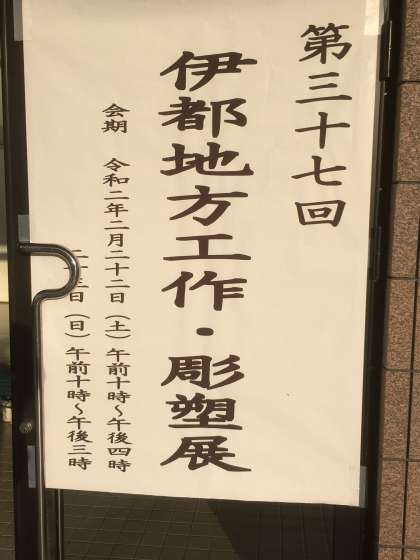 第三十七回
伊都地方工作・彫塑展
会期 令和二年二月二十二日（土）午前十時～午後四時
二十三日（日）午前十時～午後三時